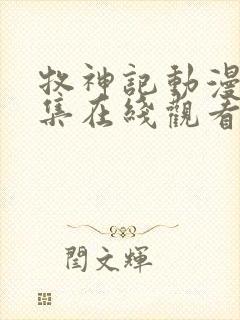 牧神記動漫
集在綫觀看
閆文輝